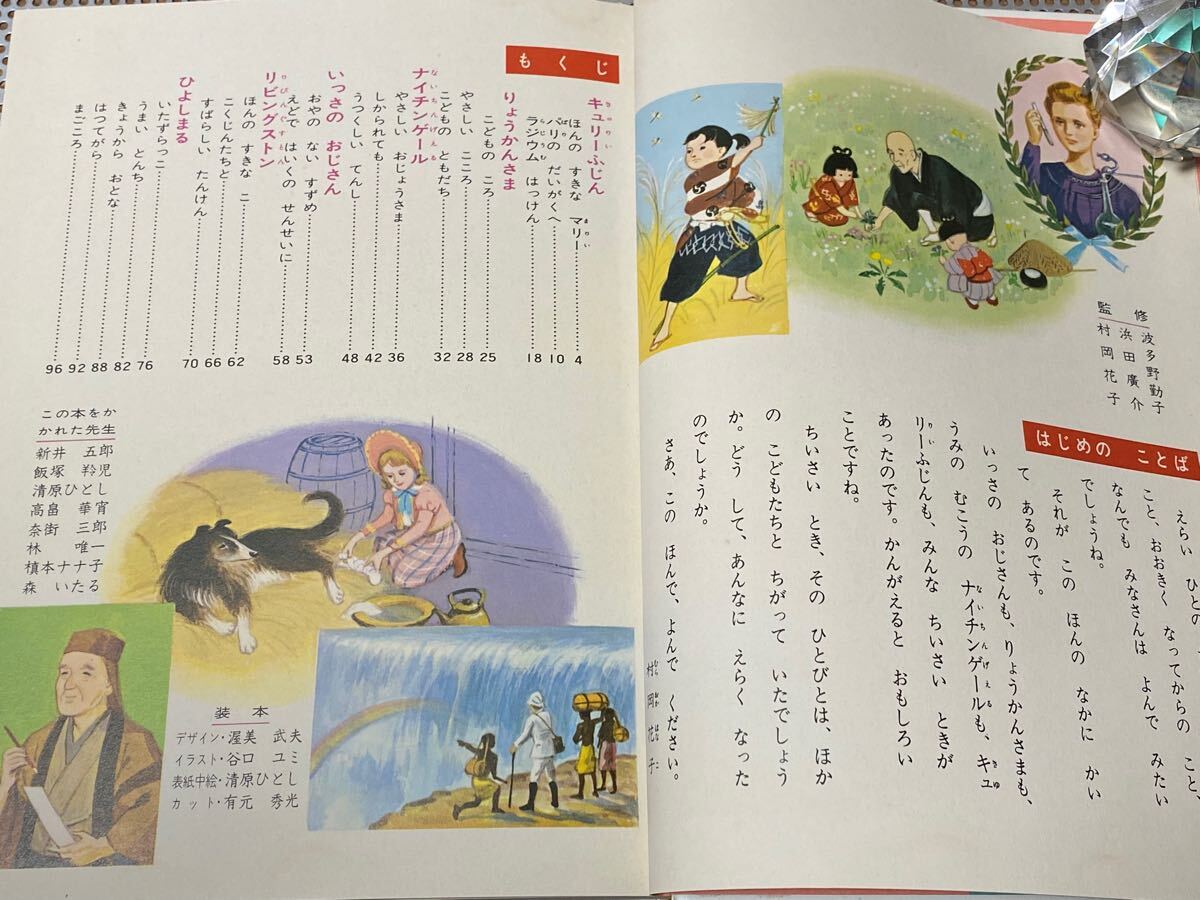 監修
波多野勤子
浜田廣介
村岡花子
はじめの ことば
えらい ひとの
こと、おおきく なってからの こと、
なんでも みなさんは よんで みたい
でしょうね。
それが この ほんの なかに かい
て あるのです。
いっさの おじさんも、りょうかんさまも、
うみの むこうの ナイチンゲールも、キュ
ないちんげえる きゅ
リーふじんも、みんな ちいさい ときが
りい
あったのです。かんがえると おもしろい
ことですね。
ちいさい とき、その ひとびとは、ほか
の こどもたちと ちがって いたでしょう
か。どう して、あんなに えらく なった
のでしょうか。
さあ、この ほんで、よんで ください。
村岡花子
むらおかはなこ
もくじ
キュリーふじん
きゅりい
ほんの すきな マリー……4
まりい
パリの だいがくへ……10
ぱり
ラジウム はっけん……18
らじうむ
りょうかんさま
こどもの ころ……25
やさしい こころ……28
こどもの ともだち……32
ナイチンゲール
ないちんげえる
やさしい おじょうさま……36
しかられても……42
うつくしい てんし……48
いっさの おじさん
おやの ない すずめ……53
えどで はいくの せんせいに……58
リビングストン
りびんぐすとん
ほんの すきな こ……62
こくじんたちと……66
すばらしい たんけん……70
ひよしまる
いたずらっこ……76
うまい とんち……82
きょうから おとな……88
はつてがら……92
まごころ……96
この本をか
かれた先生
新井 五郎
飯塚 羚児
清原ひとし
高畠 華宵
奈街 三郎
林 唯一
槙本ナナ子
森 いたる
装本
デザイン・渥美 武夫
イラスト・谷口 ユミ
表紙中絵・清原ひとし
カット・有元 秀光